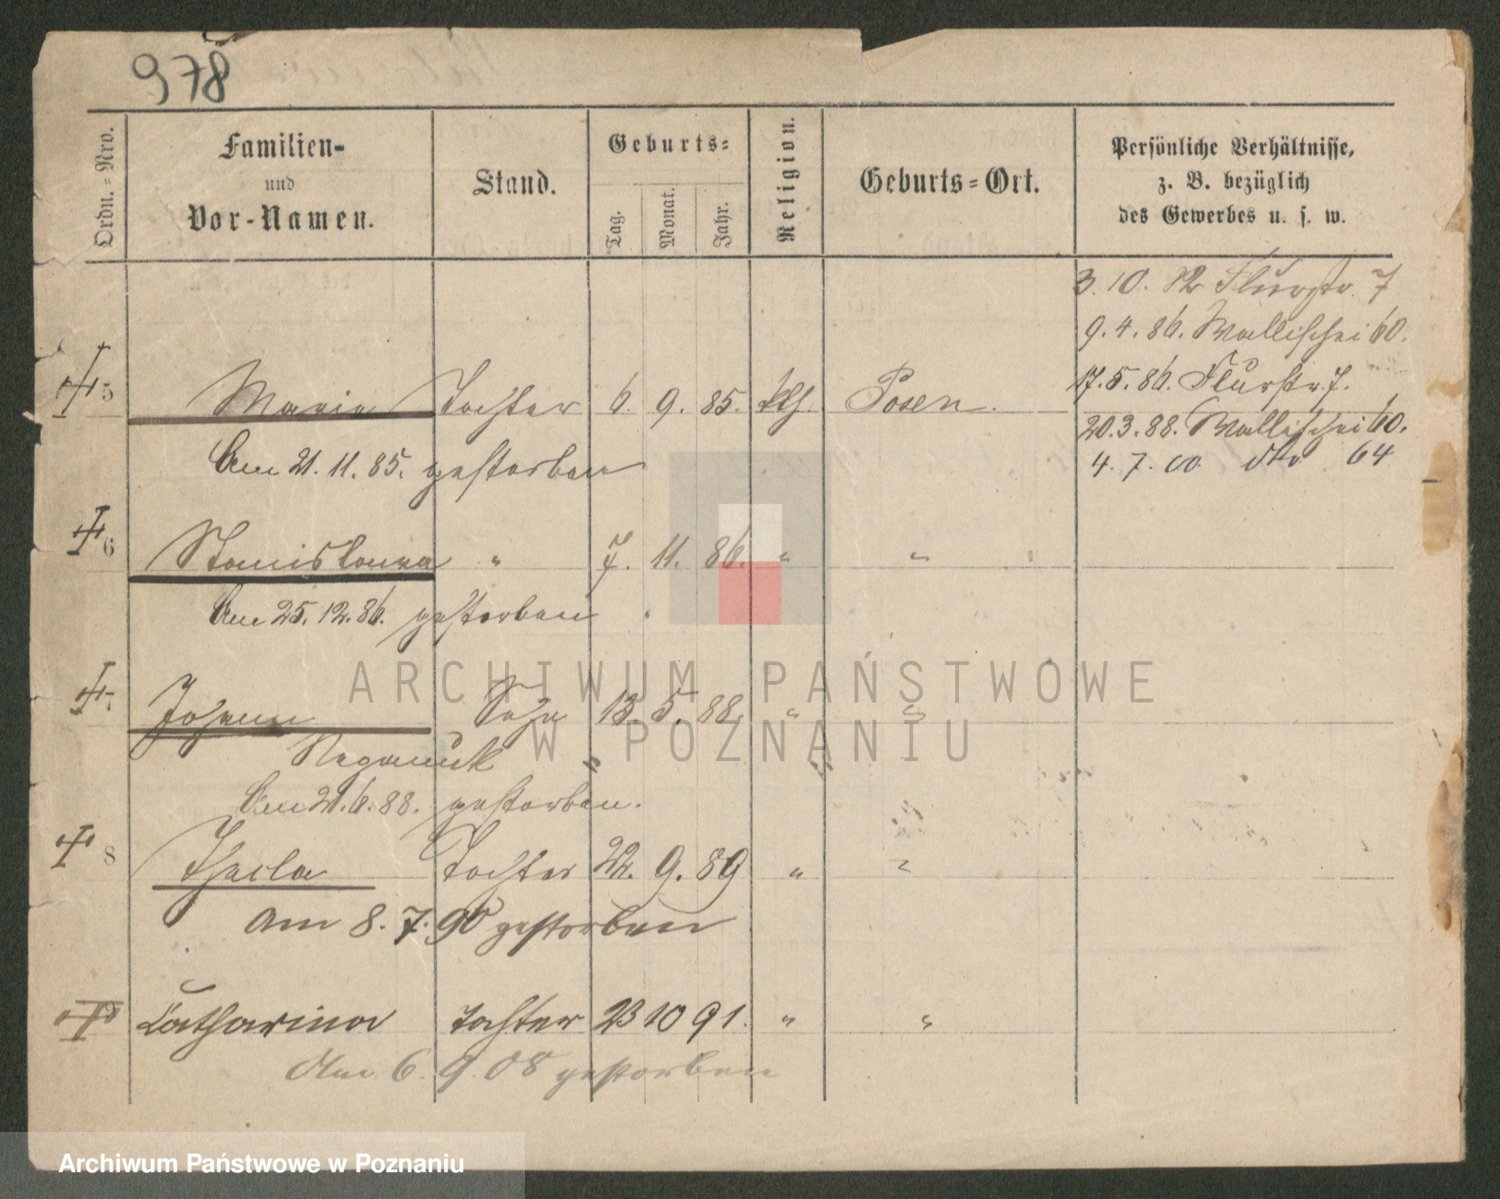 978
Ordn.-Nro.
Familien-
und
Vor-Namen.
Stand.
Geburts-
Tag.
Monat.
Jahr.
Religion.
Geburts-Ort.
Persönliche Verhältnisse,
z. B. bezüglich
des Gewerbes u. s. w.
3. 10. 82 Flurstr. 7
9. 4. 86. Wallischei 60.
17. 5. 86. Flurstr. 7.
5 Maria Tochter 6. 9. 85. kth. Posen.
20. 3. 88. Wallischei 60.
Am 21. 11. 85. gestorben
4. 7. 00 dto 64
6 Stanislawa " 7. 11. 86. " "
Am 25. 12. 86. gestorben
7 Johann Sohn 13. 5. 88 " "
Nepomuk " "
Am 21. 6. 88. gestorben.
8 Thecla Tochter 22. 9. 89 " "
am 8. 7. 90 gestorben
Catharina Tochter 23 10 91. " "
Am 6. 9. 08 gestorben
ARCHIWUM PAŃSTWOWE
W POZNANIU
Archiwum Państwowe w Poznaniu